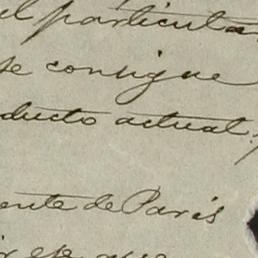 el particular
se consigue
ducto actual.
ente de Paris
ese que